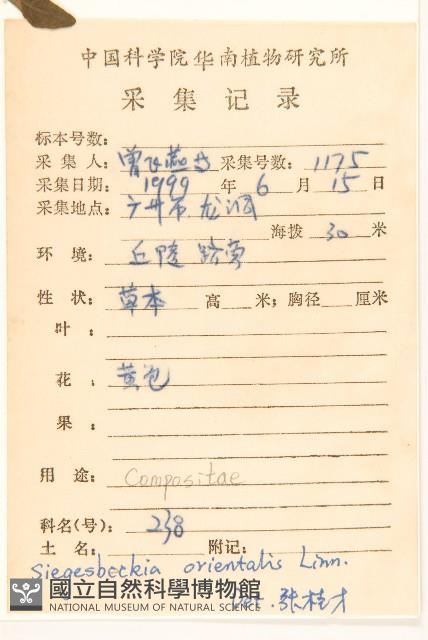 中国科学院华南植物研究所
采集记录
标本号数:
采集人: 曾飞燕 采集号数: 1175
采集日期: 1999 年 6 月 15 日
采集地点: 广州市龙洞
海拨 30 米
环 境: 丘陵 路旁
性 状: 草本 高 米; 胸径 厘米
叶 :
花 : 黄色
果 :
用 途: Compositae
科名(号): 238
土 名: 附记:
Siegesbeckia orientalis Linn.
國立自然科學博物館
NATIONAL MUSEUM OF NATURAL SCIENCE
det. 张桂才